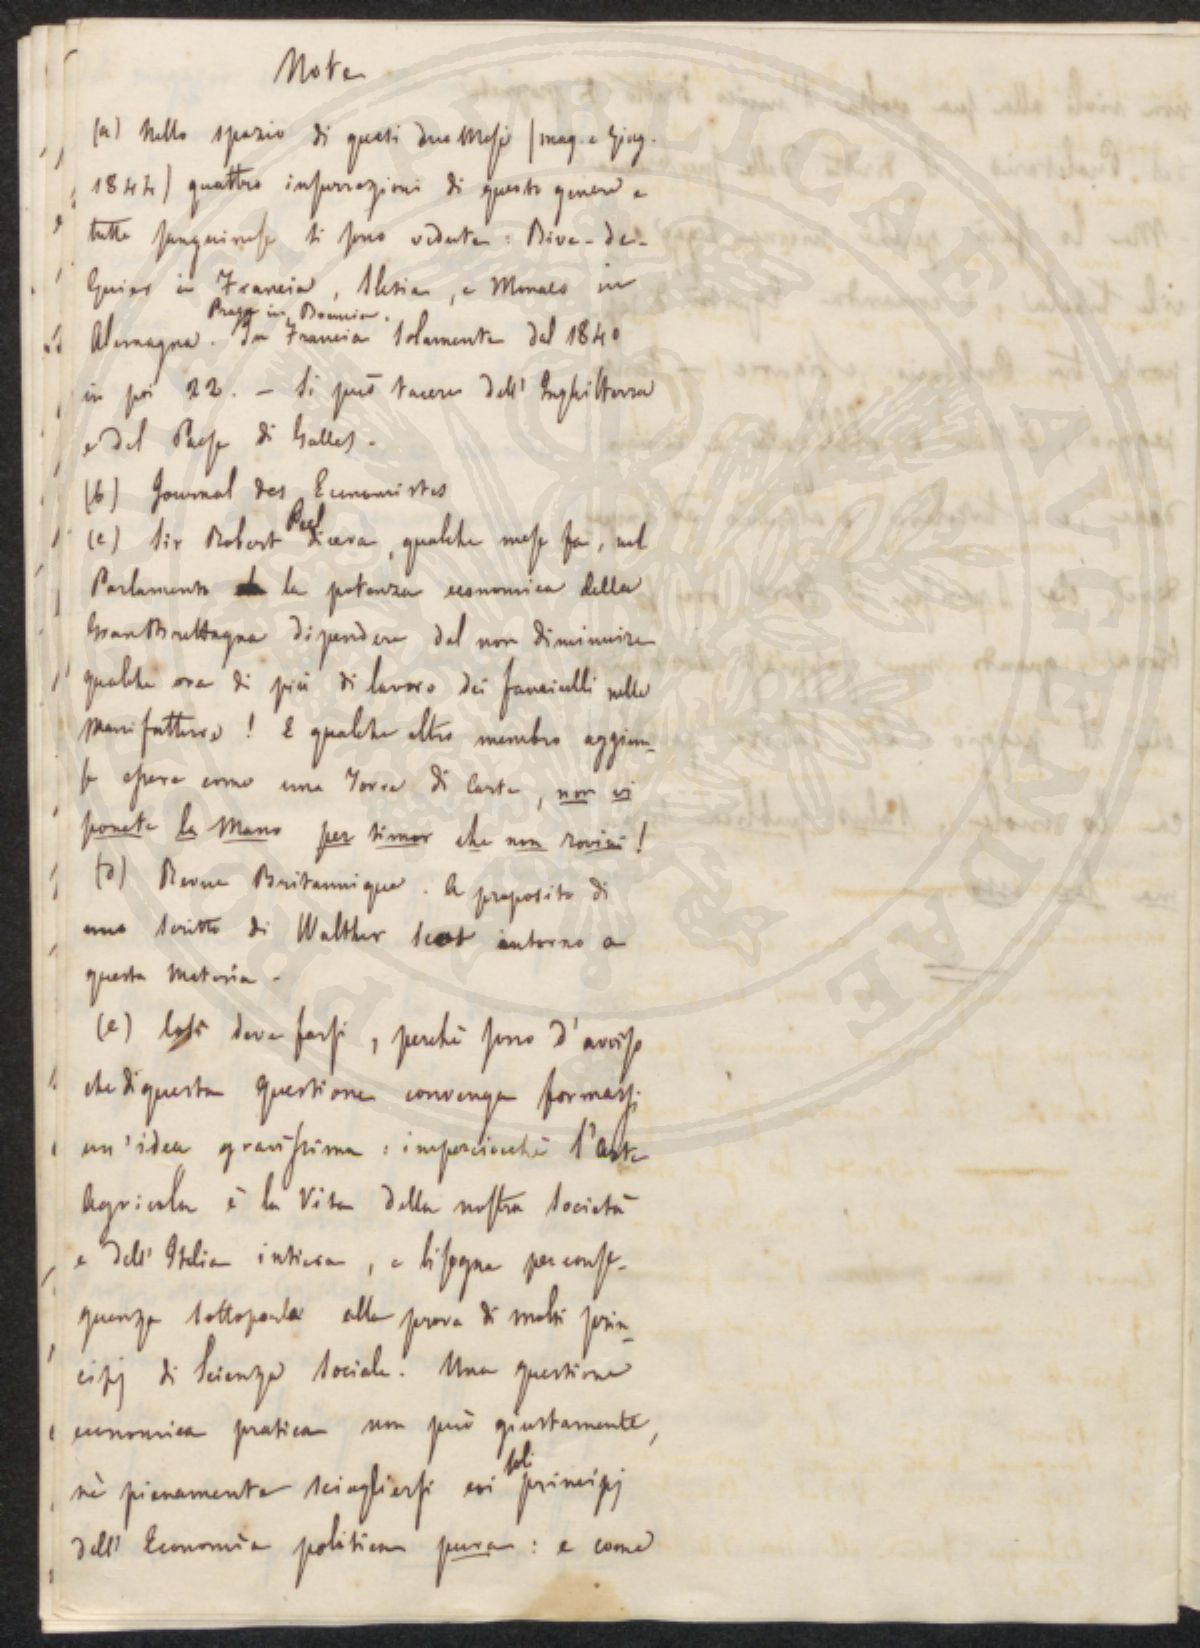 Note
(a) Nello spazio di questi due Mesi (mag. e Giug.
1844) quattro insurrezioni di questo genere e
tutte sanguinose si sono vedute: Rive-de-
Guier in Francia, Slesia, e Monaco in
Praga in Boemia.
Alemagna. In Francia solamente dal 1840
in poi 22. – Si può tacere dell' Inghilterra
e del Paese di Galles.
(b) Journal des Economistes
(c) Sir Robert Peel diceva, qualche mese fa, nel
Parlamento la potenza economica della
Gran Brettagna dipendere dal non diminuire
qualche ora di più di lavoro dei fanciulli nelle
Manifatture! E qualche altro membro aggiun-
se essere come una Torre di Carte, non vi
ponete la Mano per timor che non rovini!
(d) Revue Britannique. A proposito di
uno scritto di Walther Scot intorno a
questa Materia.
(e) Così deve farsi, perchè sono d'avviso
che di questa Questione convenga formarsi
un'idea gravissima: imperciocchè l'Arte
Agricola è la Vita della nostra Società
e dell' Italia intiera, e bisogna per conse-
guenza sottoporla alla prova di molti prin-
cipj di Scienza Sociale. Una questione
economica pratica non può giustamente,
nè pienamente sciogliersi coi soli principj
dell' Economia politica pura: e come
PUBLICAE AVGENDAE